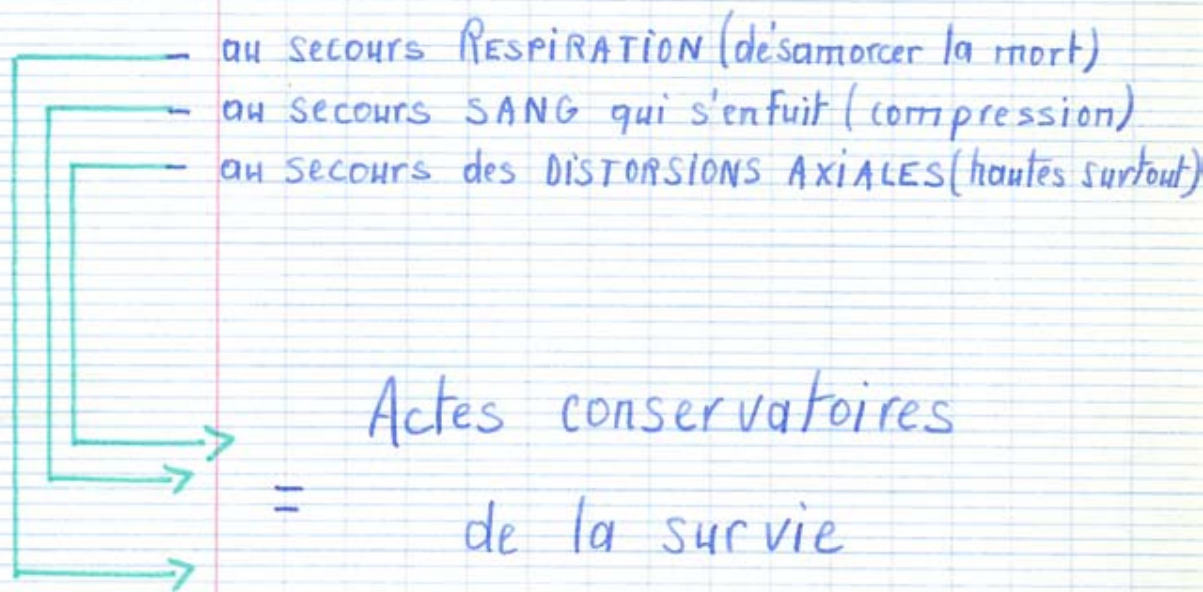 - au secours RESPIRATION (désamorcer la mort)
- au secours SANG qui s'enfuit (compression)
- au secours des DISTORSIONS AXIALES (hautes surtout)
Actes conservatoires
=
de la survie